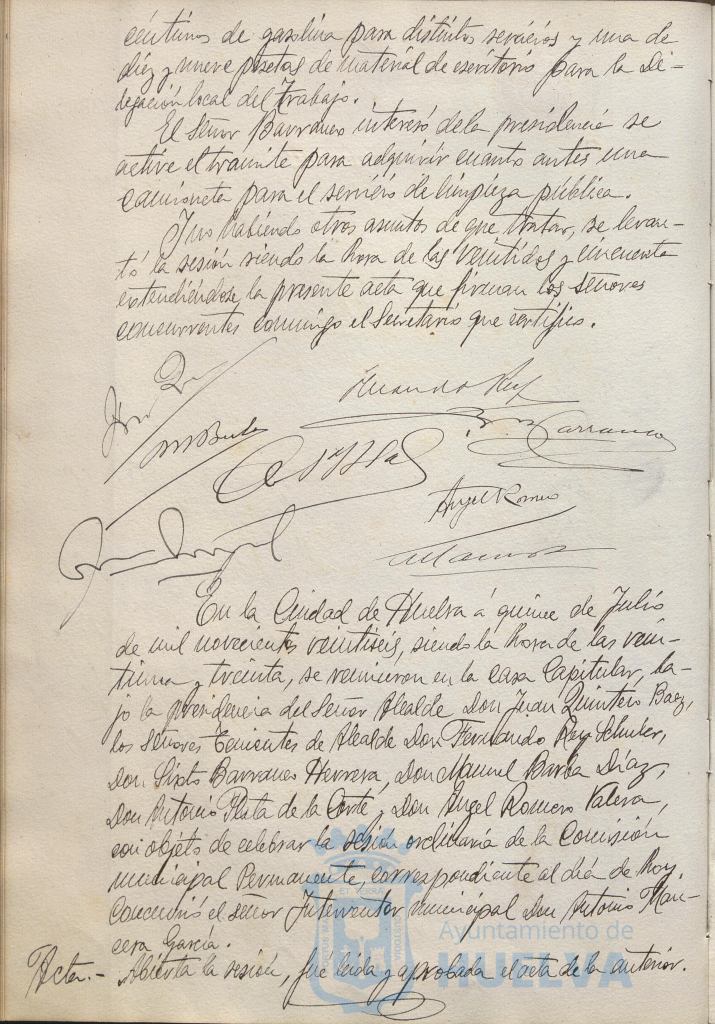 céntimos de gasolina para distintos servicios y una de
diez y nueve pesetas de material de escritorio para la De-
legación local del Trabajo.
El Señor Barranco interesó de la presidencia se
active el tramite para adquirir cuanto antes una
camioneta para el servicio de limpieza pública.
Y no habiendo otros asuntos de que tratar, se levan-
tó la sesión siendo la hora de las veintidos y cincuenta
extendiéndose la presente acta que firman los señores
concurrentes conmigo el Secretario que certifico.
Fernando Rey
M Barba
Barranco
Angel Romero
En la Ciudad de Huelva á quince de Julio
de mil novecientos veintiseis, siendo la hora de las vein-
tiuna y treinta, se reunieron en la casa Capitular, ba-
jo la presidencia del Señor Alcalde Don Juan Quintero Baez,
los Señores Tenientes de Alcalde Don Fernando Rey Schuler,
Don Sixto Barranco Herrera, Don Manuel Barba Díaz,
Don Antonio Plata de la Corte y Don Angel Romero Valera,
con objeto de celebrar la sesión ordinaria de la Comisión
municipal Permanente, correspondiente al día de hoy.
Concurrió el señor Interventor municipal Don Antonio Man-
cera García.
Acta.- Abierta la sesión, fué leida y aprobada el acta de la anterior.
Ayuntamiento de
HUELVA